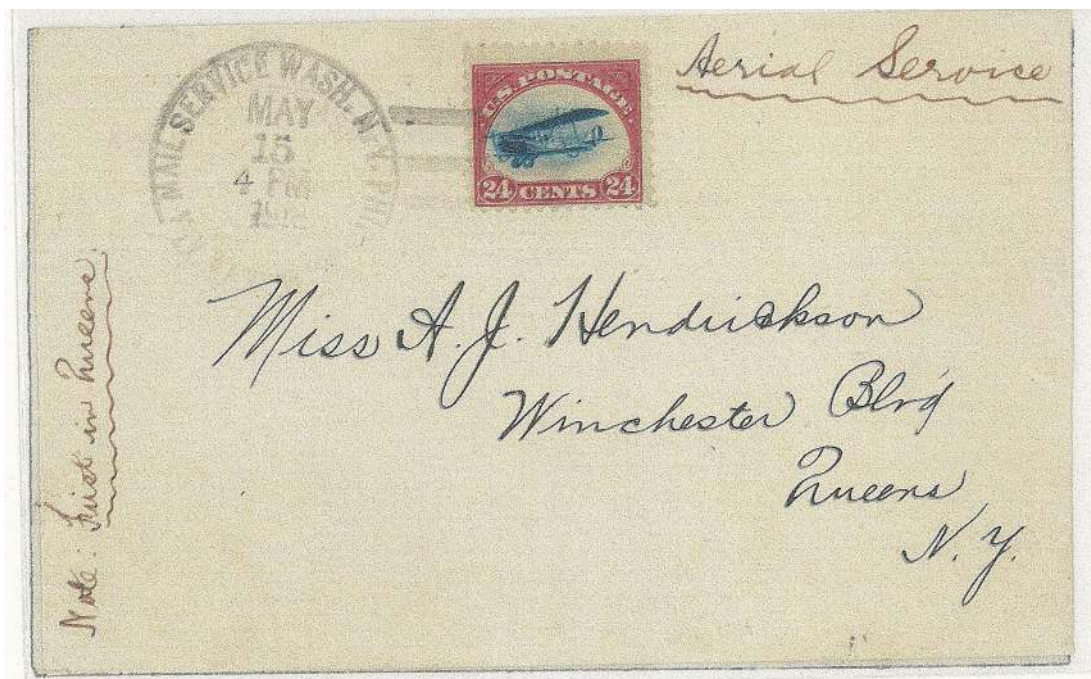 MAIL SERVICE WASH. N.Y.
MAY
15
4 PM
U.S. POSTAGE.
24 CENTS 24
Aerial Service
Miss A. J. Hendrickson
Winchester Blvd
Queens
N. Y.
Note: First in Queens.